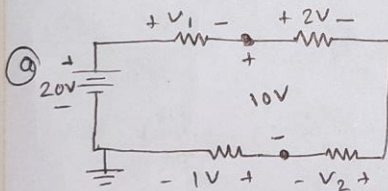 + V1 - + 2V -
a +
20V
-
+
10V
-
- 1V + - V2 +